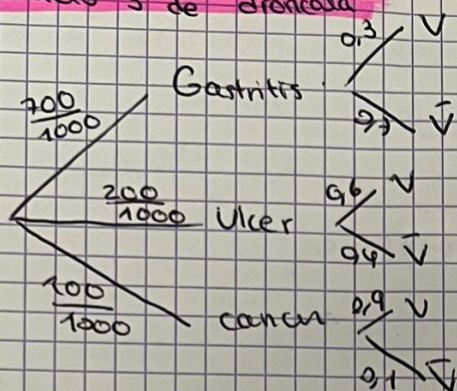 de
0,3 V
Gastritis
700/1000
0,7 V̄
200/1000 Ulcer
0,6 V
0,4 V̄
100/1000
cancer
0,9 V
0,1 V̄